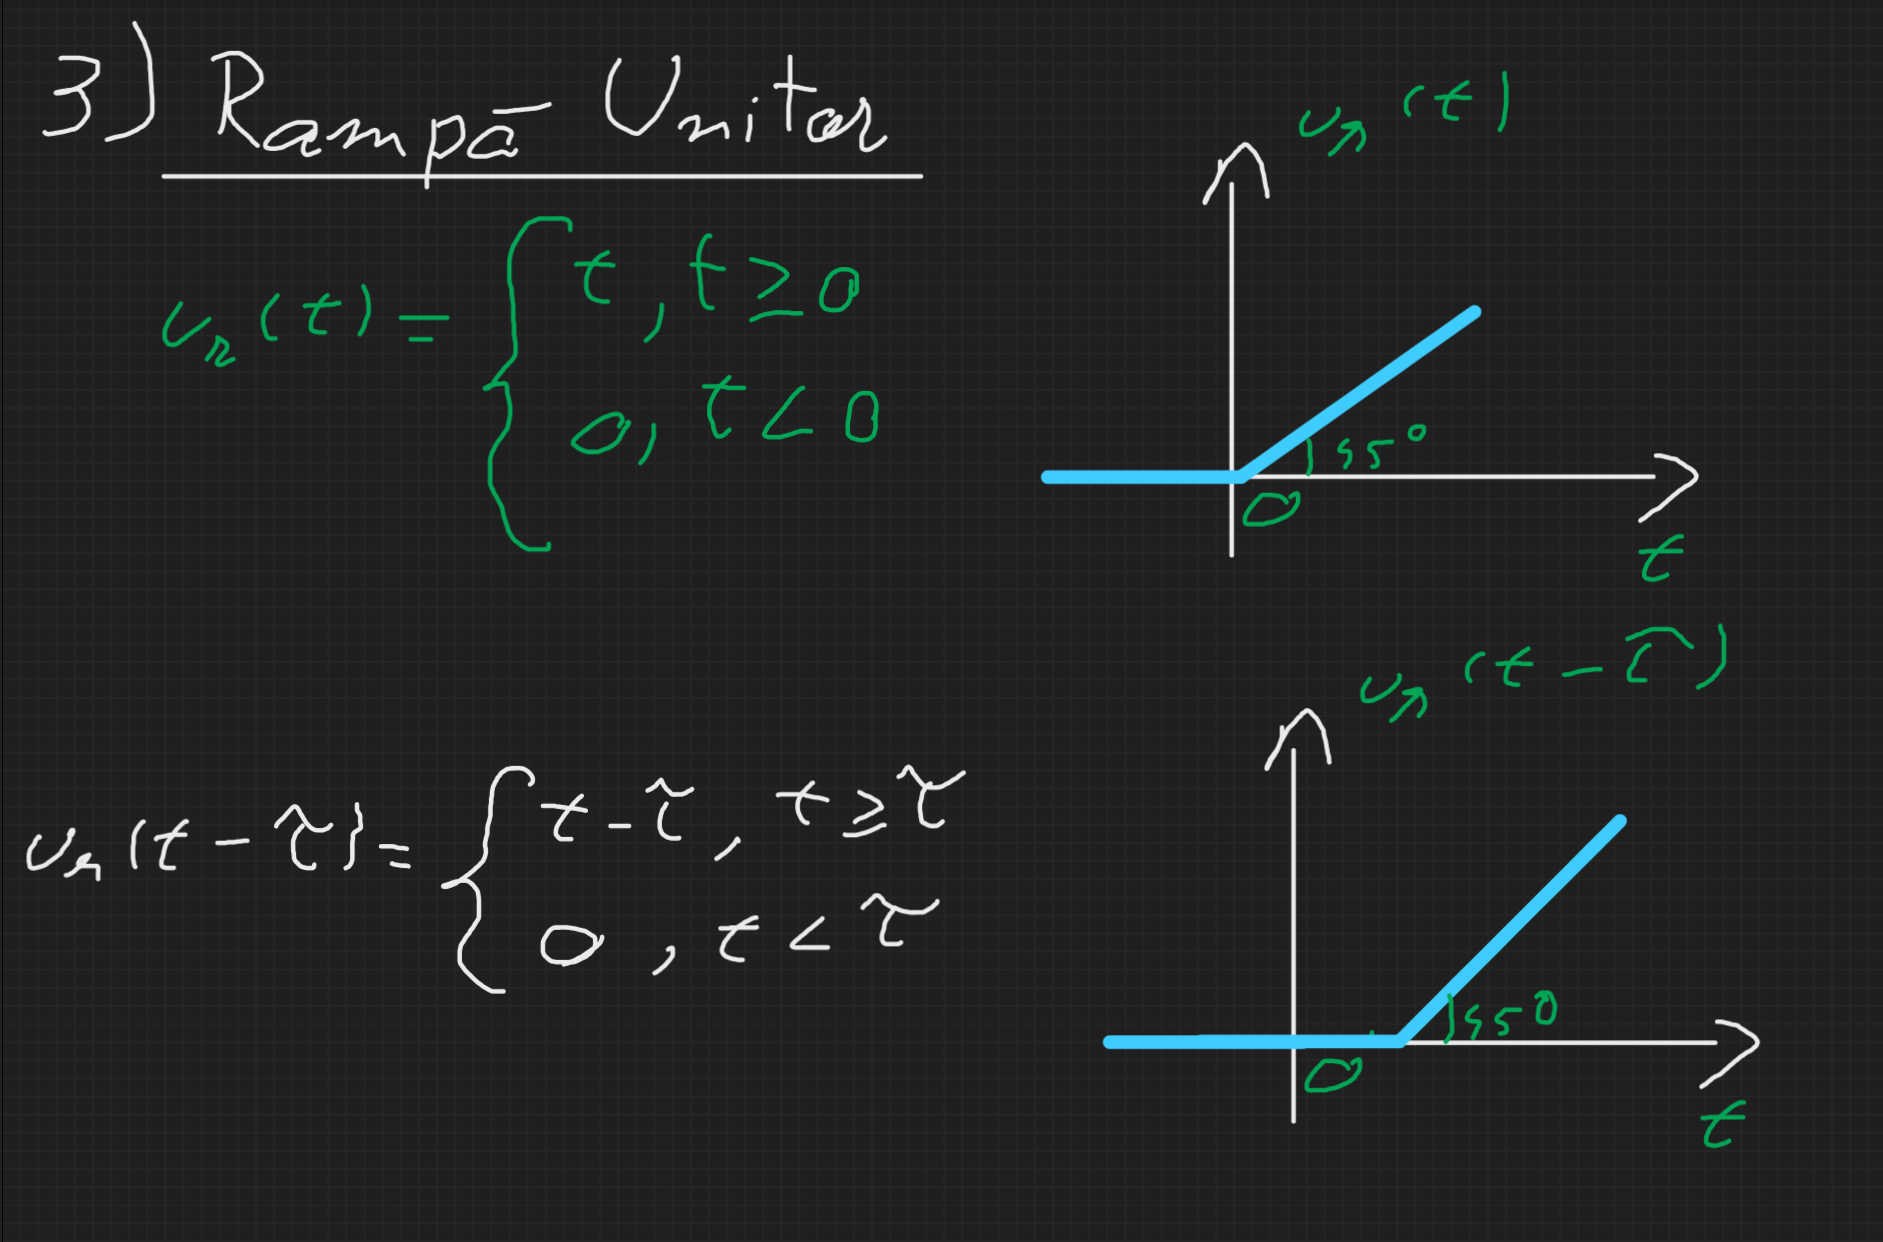 3) Rampā Unitar
u_r(t) = { t, t ≥ 0
0, t < 0
u_r(t)
45°
0
t
u_r(t - τ} = { t - τ, t ≥ τ
0, t < τ
u_r(t - τ)
45°
0
t